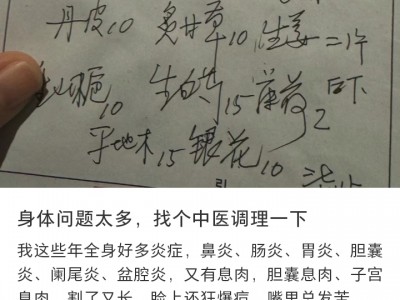 丹皮10 炙甘草10 生姜二片
山栀10 生白芍15 薄荷2 后下
平地木15 银花10
身体问题太多，找个中医调理一下
我这些年全身好多炎症，鼻炎、肠炎、胃炎、胆囊
炎、阑尾炎、盆腔炎，又有息肉，胆囊息肉、子宫
息肉，割了又长，脸上还狂爆痘，嘴里总发苦